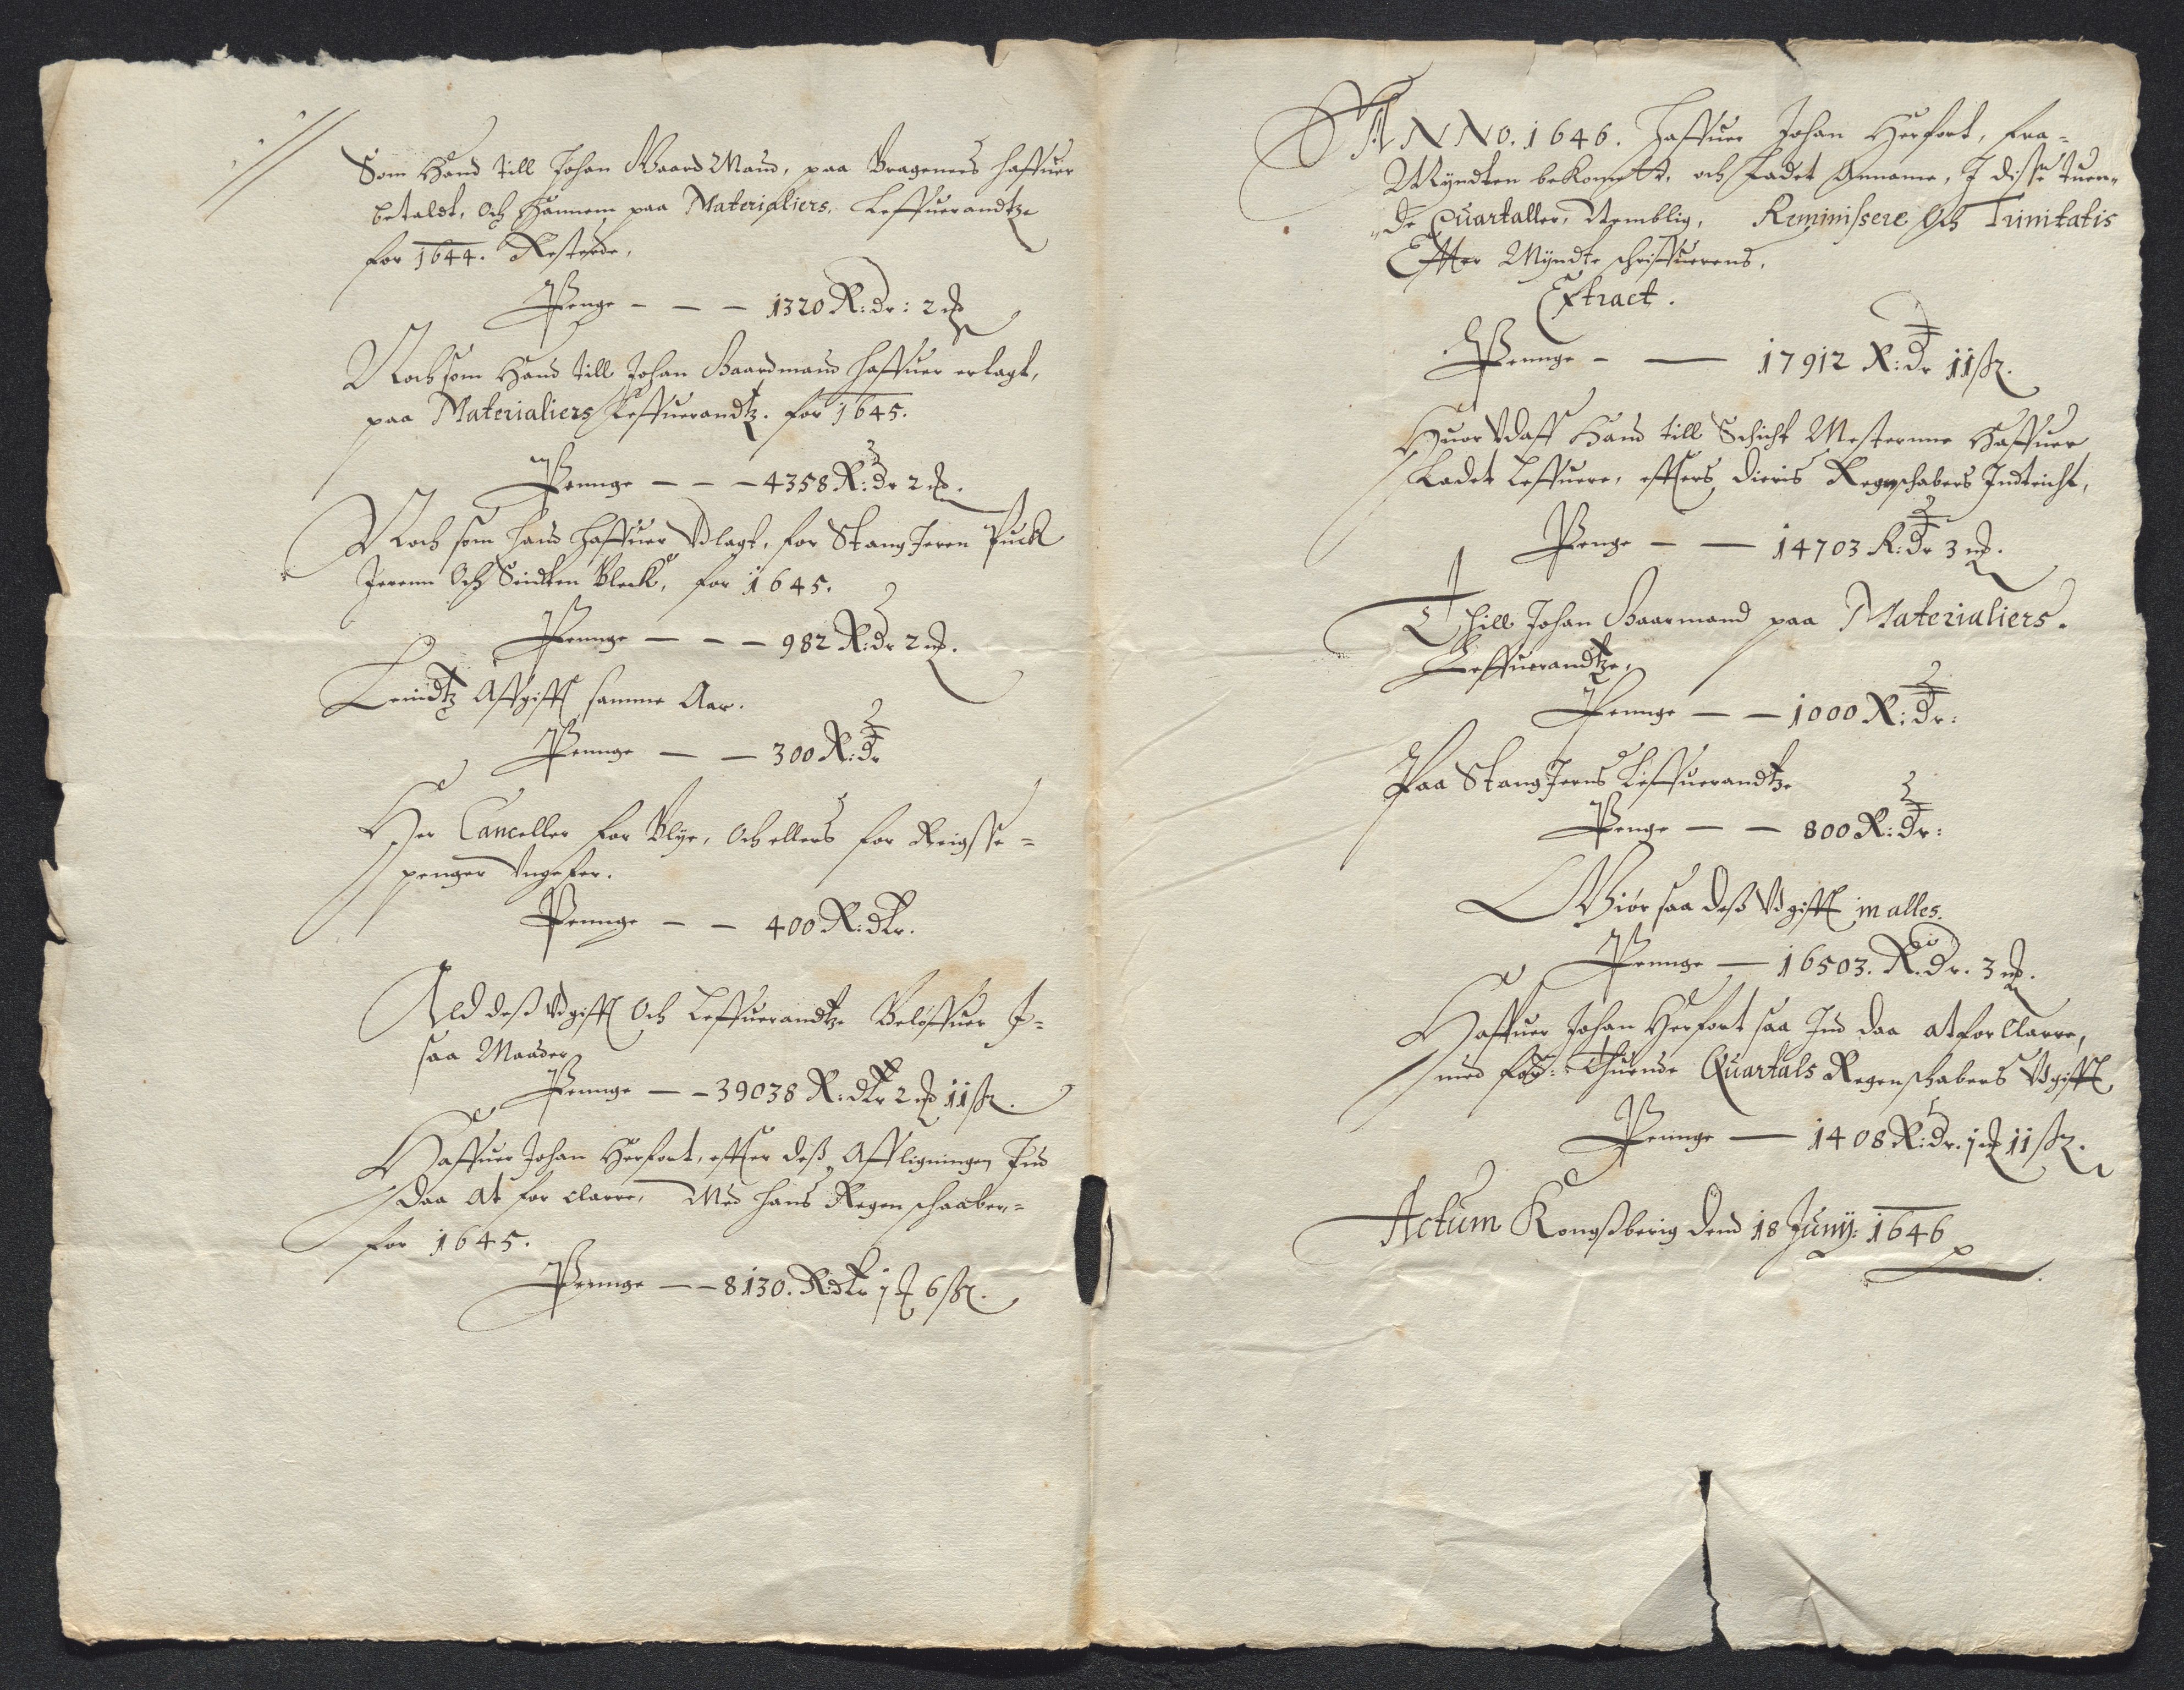 Som Hand till Johan Gaard Mand, paa Bragennes haffuer
betaldt, Och Hannem paa Materialiers, Leffuerandtze
for 1644. Resterde,
Penge – – – 1320 R: dr: 2 mk
Noch som Hand till Johan Gaardmand haffuer erlagt,
paa Materialiers Leffuerandtz. for 1645.
Pennge – – – 4358 R: dr 2 mk.
Noch som hand haffuer Vdlagt, for Stang Jeren Puck
Jerenn Och Seidten Bleck, for 1645.
Pennge – – – 982 R: dr 2 mk.
Leindtz Affgifft samme Aar.
Pennge – – 300 R: dr
Her Canceller for Blye, Och ellers for Reigsse=
penger Vngefer.
Pennge – – 400 R: dlr.
Ald dess Vdgifft Och Leffuerandtze Beløffuer J=
saa Maader
Pennge – – 39038 R: dlr 2 mk 11 ß.
Haffuer Johan Herfort, effter dess Affligningen Jnd
daa At for clarre, Med hans Regenschaaber=
for 1645.
Pennge – – 8130. R: dlr 1 mk 6 ß.
ANNO. 1646. Haffuer Johan Herfort, fra=
Myndten bekomett, och Ladet Anname, J disse tuen=
de Quartaller, Nemblig, Reminissere Och Trinitatis
Effter Myndte schriffuerens,
Extract.
Pennge – — 17912 R: dr 11 ß.
Huor Vdaff Hand till Schicht Mesternne Haffuer
Ladet Leffuere, effters dieris Regenschabers Jndtricht,
Penge – — 14703 R: dr 3 mk.
Thill Johan Gaarmand paa Materialiers.
Leffuerandtze,
Pennge – – 1000 R: dr:
Paa Stang Jerns Leffuerandtze
Penge – – 800 R: dr:
Giør saa dess Vdgifft in alles.
Pennge — 16503. R. dr. 3 mk.
Haffuer Johan Herfort saa Jnd daa at for Clarre,
med for: Thuende Quartals Regenschabers Vdgifft
Pennge — 1408 R: dr. 1 mk 11 ß.
Actum Kongssberig dend 18 Junij: 1646